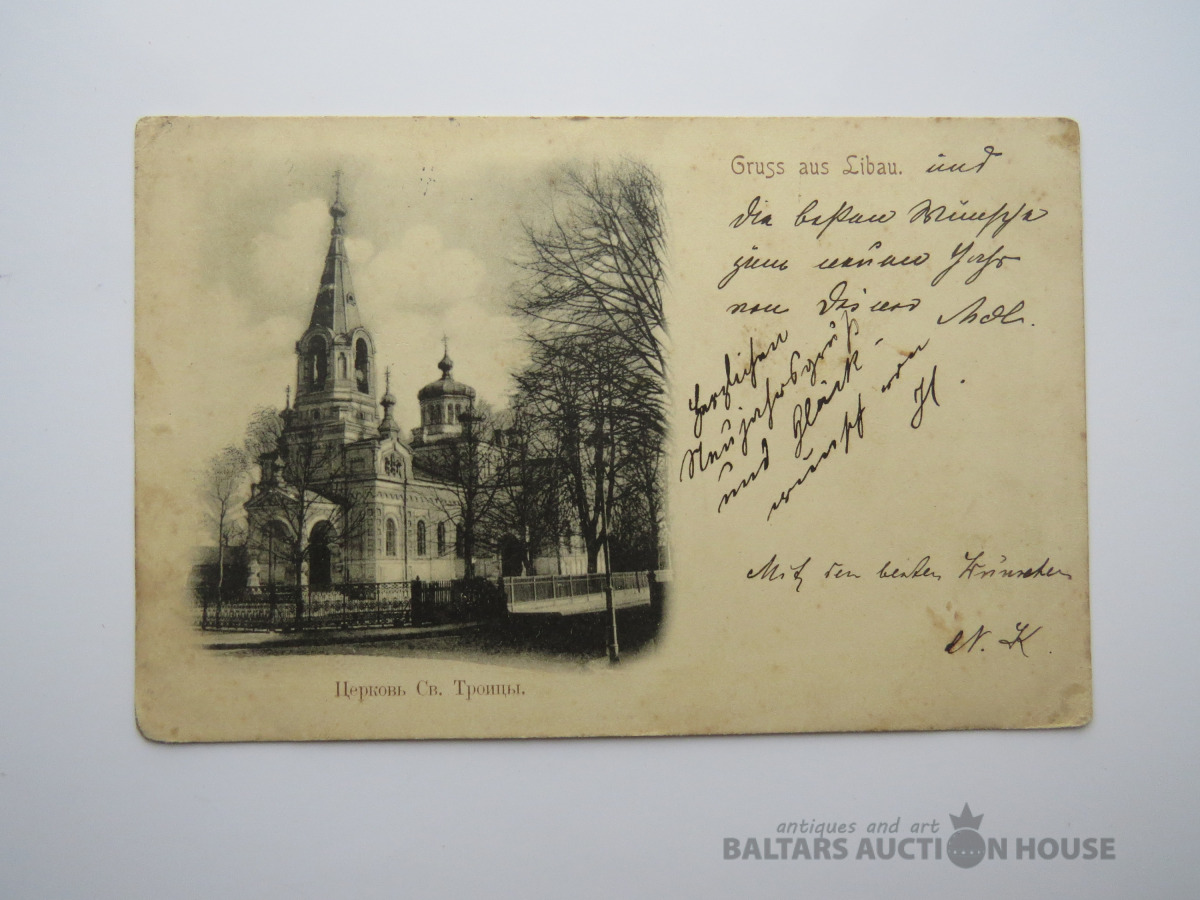 Gruss aus Libau. und
die besten Wünsche
zum neuen Jahr
von Deiner Adl.
Herzlichen
Neujahrsgruß
und Glück-
wunsch von
H.
Mit den besten Wünschen
N. K.
Церковь Св. Троицы.
antiques and art
BALTARS AUCTION HOUSE